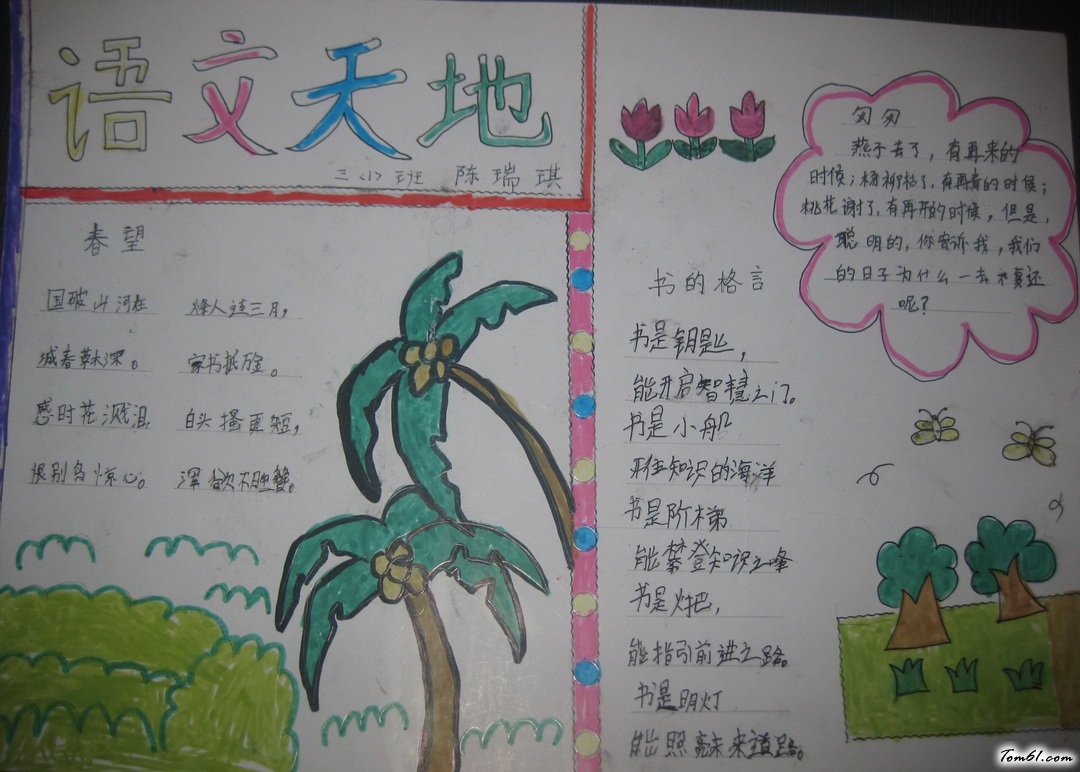 语文天地
三(小)班 陈瑞琪
春望
国破山河在 烽火连三月，
城春草木深。 家书抵万金。
感时花溅泪 白头搔更短，
恨别鸟惊心。 浑欲不胜簪。
书的格言
书是钥匙，
能开启智慧之门。
书是小船
开往知识的海洋
书是阶梯
能攀登知识之峰
书是灯巴，
能指引前进之路。
书是明灯
能照亮未来道路。
匆匆
燕子去了，有再来的
时候；杨柳枯了，有再青的时候；
桃花谢了，有再开的时候，但是，
聪明的，你告诉我，我们
的日子为什么一去不复还
呢？
Tom61.com